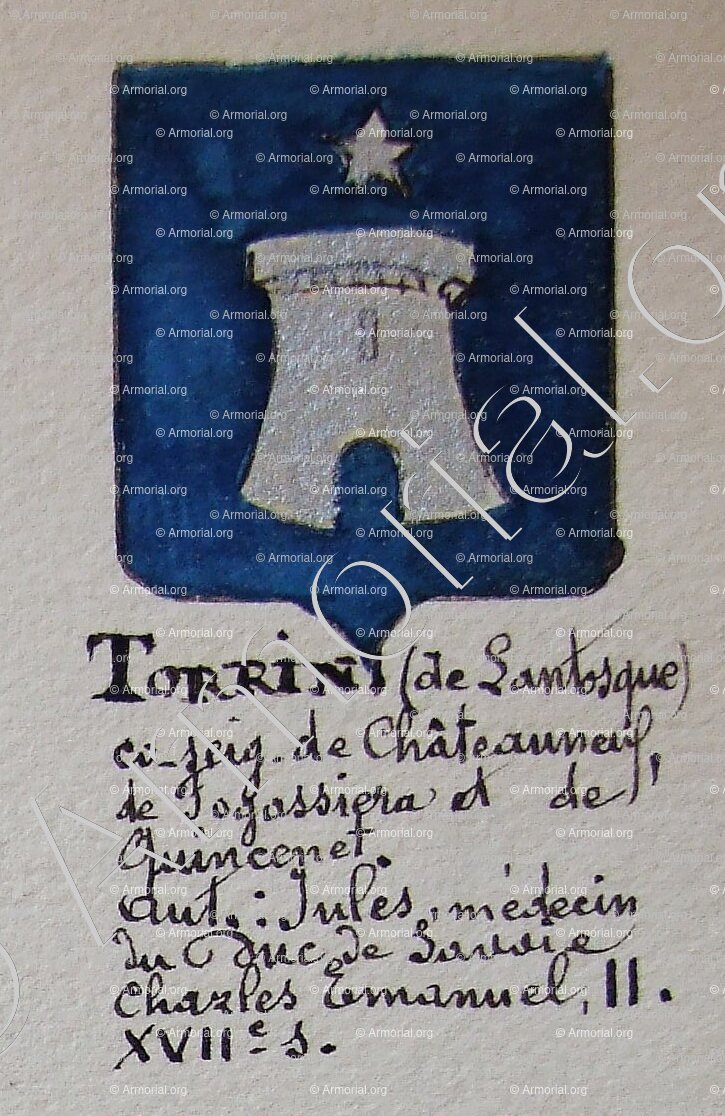 TORRINI (de Lantosque)
co-seig. de Châteauneuf,
de Togassiera et de
Quincenet.
Aut.: Jules, médecin
du Duc de Savoie
Charles Emanuel, II.
XVIIe s.
Armorial.org